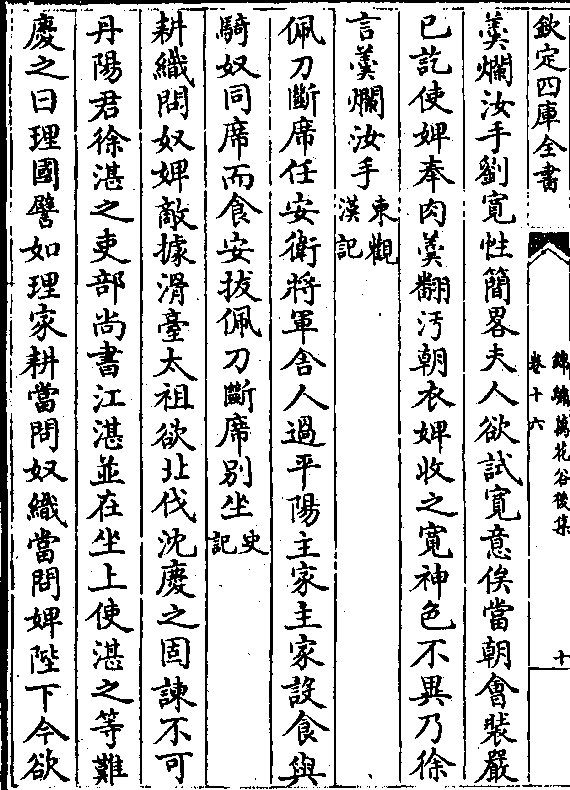 欽定四庫全書
錦繡萬花谷後集
卷十六
十
羮爛汝手劉寛性簡畧夫人欲試寛意俟當朝會裝嚴
已訖使婢奉肉羮翻汚朝衣婢收之寛神色不異乃徐
言羮爛汝手東觀漢記
佩刀斷席任安衛將軍舍人過平陽主家主家設食與
騎奴同席而食安拔佩刀斷席别坐史記
耕織問奴婢敵據滑臺太祖欲北伐沈慶之固諫不可
丹陽君徐湛之吏部尚書江湛並在坐上使湛之等難
慶之曰理國譬如理家耕當問奴織當問婢陛下今欲